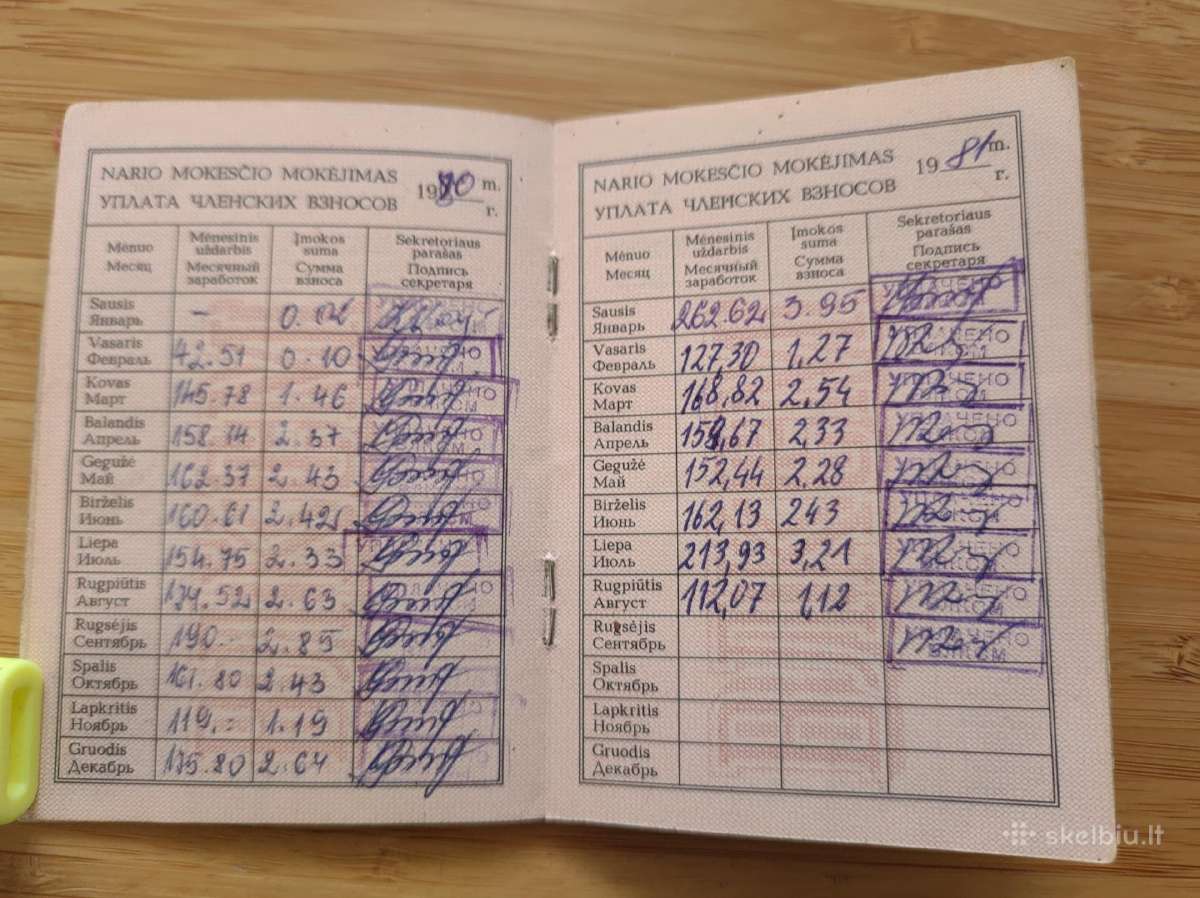 NARIO MOKESČIO MOKĖJIMAS 1980 m.
УПЛАТА ЧЛЕНСКИХ ВЗНОСОВ г.
Mėnuo Mėnesinis uždarbis Įmokos suma Sekretoriaus parašas
Месяц Месячный заработок Сумма взноса Подпись секретаря
Sausis
Январь –
Vasaris
Февраль 42.51 0.10
Kovas
Март 145.78 1.46
Balandis
Апрель 158.14 2.37
Gegužė
Май 162.37 2.43
Birželis
Июнь 160.61 2.42
Liepa
Июль 154.75 2.33
Rugpiūtis
Август 174.52 2.63
Rugsėjis
Сентябрь 190.- 2.85
Spalis
Октябрь 161.80 2.43
Lapkritis
Ноябрь 119.= 1.19
Gruodis
Декабрь 175.80 2.64
NARIO MOKESČIO MOKĖJIMAS 1981 m.
УПЛАТА ЧЛЕНСКИХ ВЗНОСОВ г.
Mėnuo Mėnesinis uždarbis Įmokos suma Sekretoriaus parašas
Месяц Месячный заработок Сумма взноса Подпись секретаря
Sausis
Январь 262.62 3.95
Vasaris
Февраль 127,30 1,27
Kovas
Март 168,82 2,54
Balandis
Апрель 2,33
Gegužė
Май 152,44 2,28
Birželis
Июнь 162,13 243
Liepa
Июль 213,93 3,21
Rugpiūtis
Август 112,07 1,12
Rugsėjis
Сентябрь УПЛАЧЕНО
Spalis
Октябрь
Lapkritis
Ноябрь
Gruodis
Декабрь
skelbiu.lt